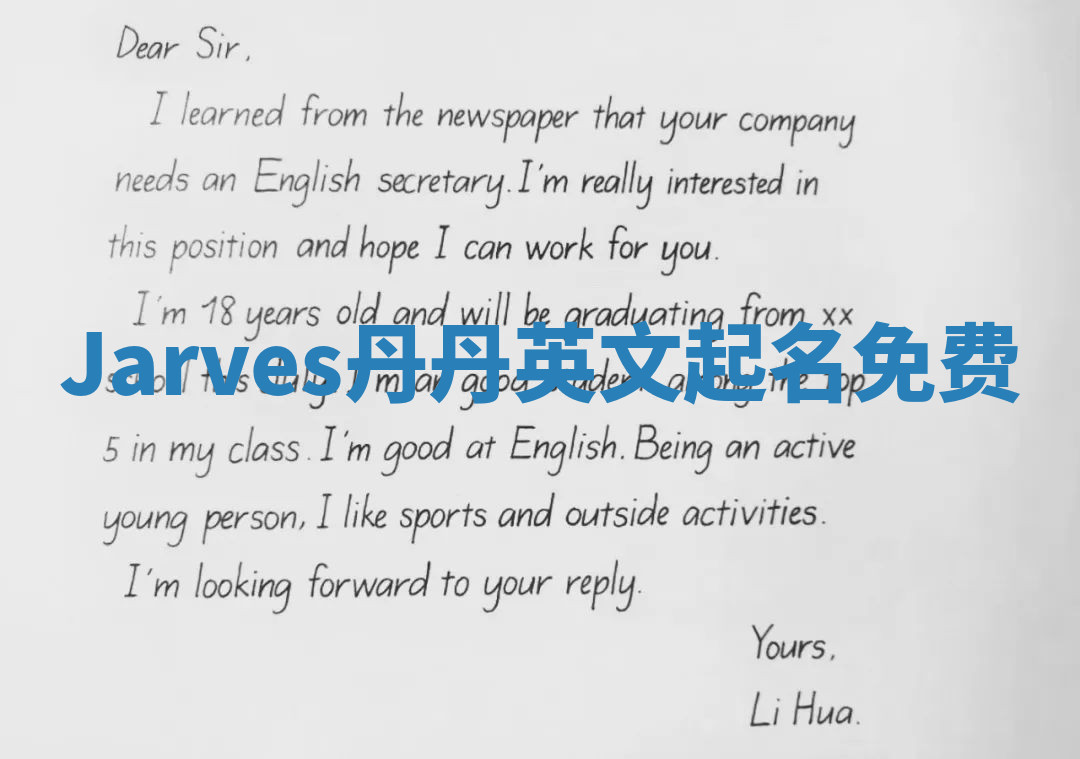 Dear Sir,
I learned from the newspaper that your company
needs an English secretary. I'm really interested in
this position and hope I can work for you.
I'm 18 years old and will be graduating from xx
Jarves丹丹英文起名免费
school this July. I'm an good student among the top
5 in my class. I'm good at English. Being an active
young person, I like sports and outside activities.
I'm looking forward to your reply.
Yours,
Li Hua.